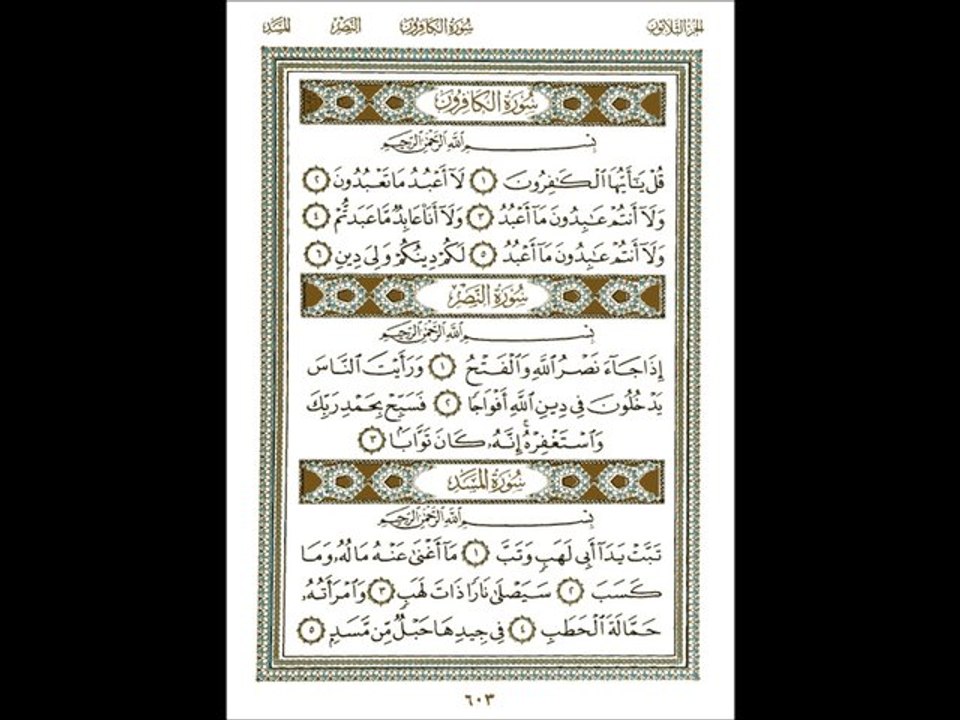 الجزء الثلاثون سورة الكافرون النصر المسد
سورة الكافرون
بِسْمِ ٱللَّهِ ٱلرَّحْمَٰنِ ٱلرَّحِيمِ
قُلْ يَٰٓأَيُّهَا ٱلْكَٰفِرُونَ ١ لَآ أَعْبُدُ مَا تَعْبُدُونَ ٢
وَلَآ أَنتُمْ عَٰبِدُونَ مَآ أَعْبُدُ ٣ وَلَآ أَنَا۠ عَابِدٌ مَّا عَبَدتُّمْ ٤
وَلَآ أَنتُمْ عَٰبِدُونَ مَآ أَعْبُدُ ٥ لَكُمْ دِينُكُمْ وَلِىَ دِينِ ٦
سورة النصر
بِسْمِ ٱللَّهِ ٱلرَّحْمَٰنِ ٱلرَّحِيمِ
إِذَا جَآءَ نَصْرُ ٱللَّهِ وَٱلْفَتْحُ ١ وَرَأَيْتَ ٱلنَّاسَ
يَدْخُلُونَ فِى دِينِ ٱللَّهِ أَفْوَاجًا ٢ فَسَبِّحْ بِحَمْدِ رَبِّكَ
وَٱسْتَغْفِرْهُ ۚ إِنَّهُۥ كَانَ تَوَّابًۢا ٣
سورة المسد
بِسْمِ ٱللَّهِ ٱلرَّحْمَٰنِ ٱلرَّحِيمِ
تَبَّتْ يَدَآ أَبِى لَهَبٍ وَتَبَّ ١ مَآ أَغْنَىٰ عَنْهُ مَالُهُۥ وَمَا
كَسَبَ ٢ سَيَصْلَىٰ نَارًا ذَاتَ لَهَبٍ ٣ وَٱمْرَأَتُهُۥ
حَمَّالَةَ ٱلْحَطَبِ ٤ فِى جِيدِهَا حَبْلٌ مِّن مَّسَدٍۭ ٥
٦٠٣